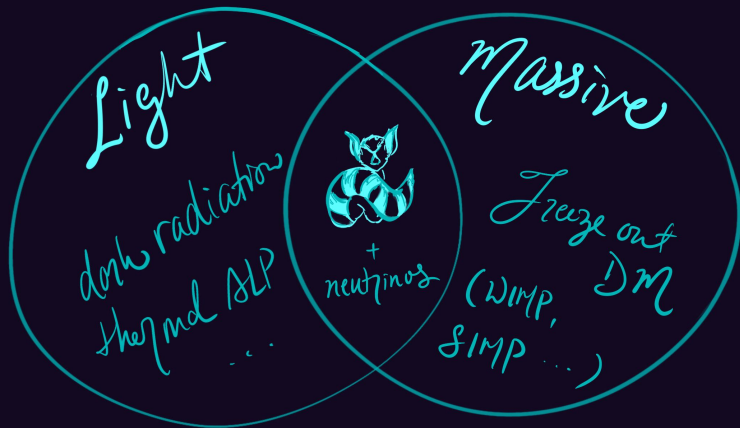 Light
dark radiation
thermal ALP
...
+
neutrinos
Massive
Freeze out
DM
(WIMP,
SIMP ...)